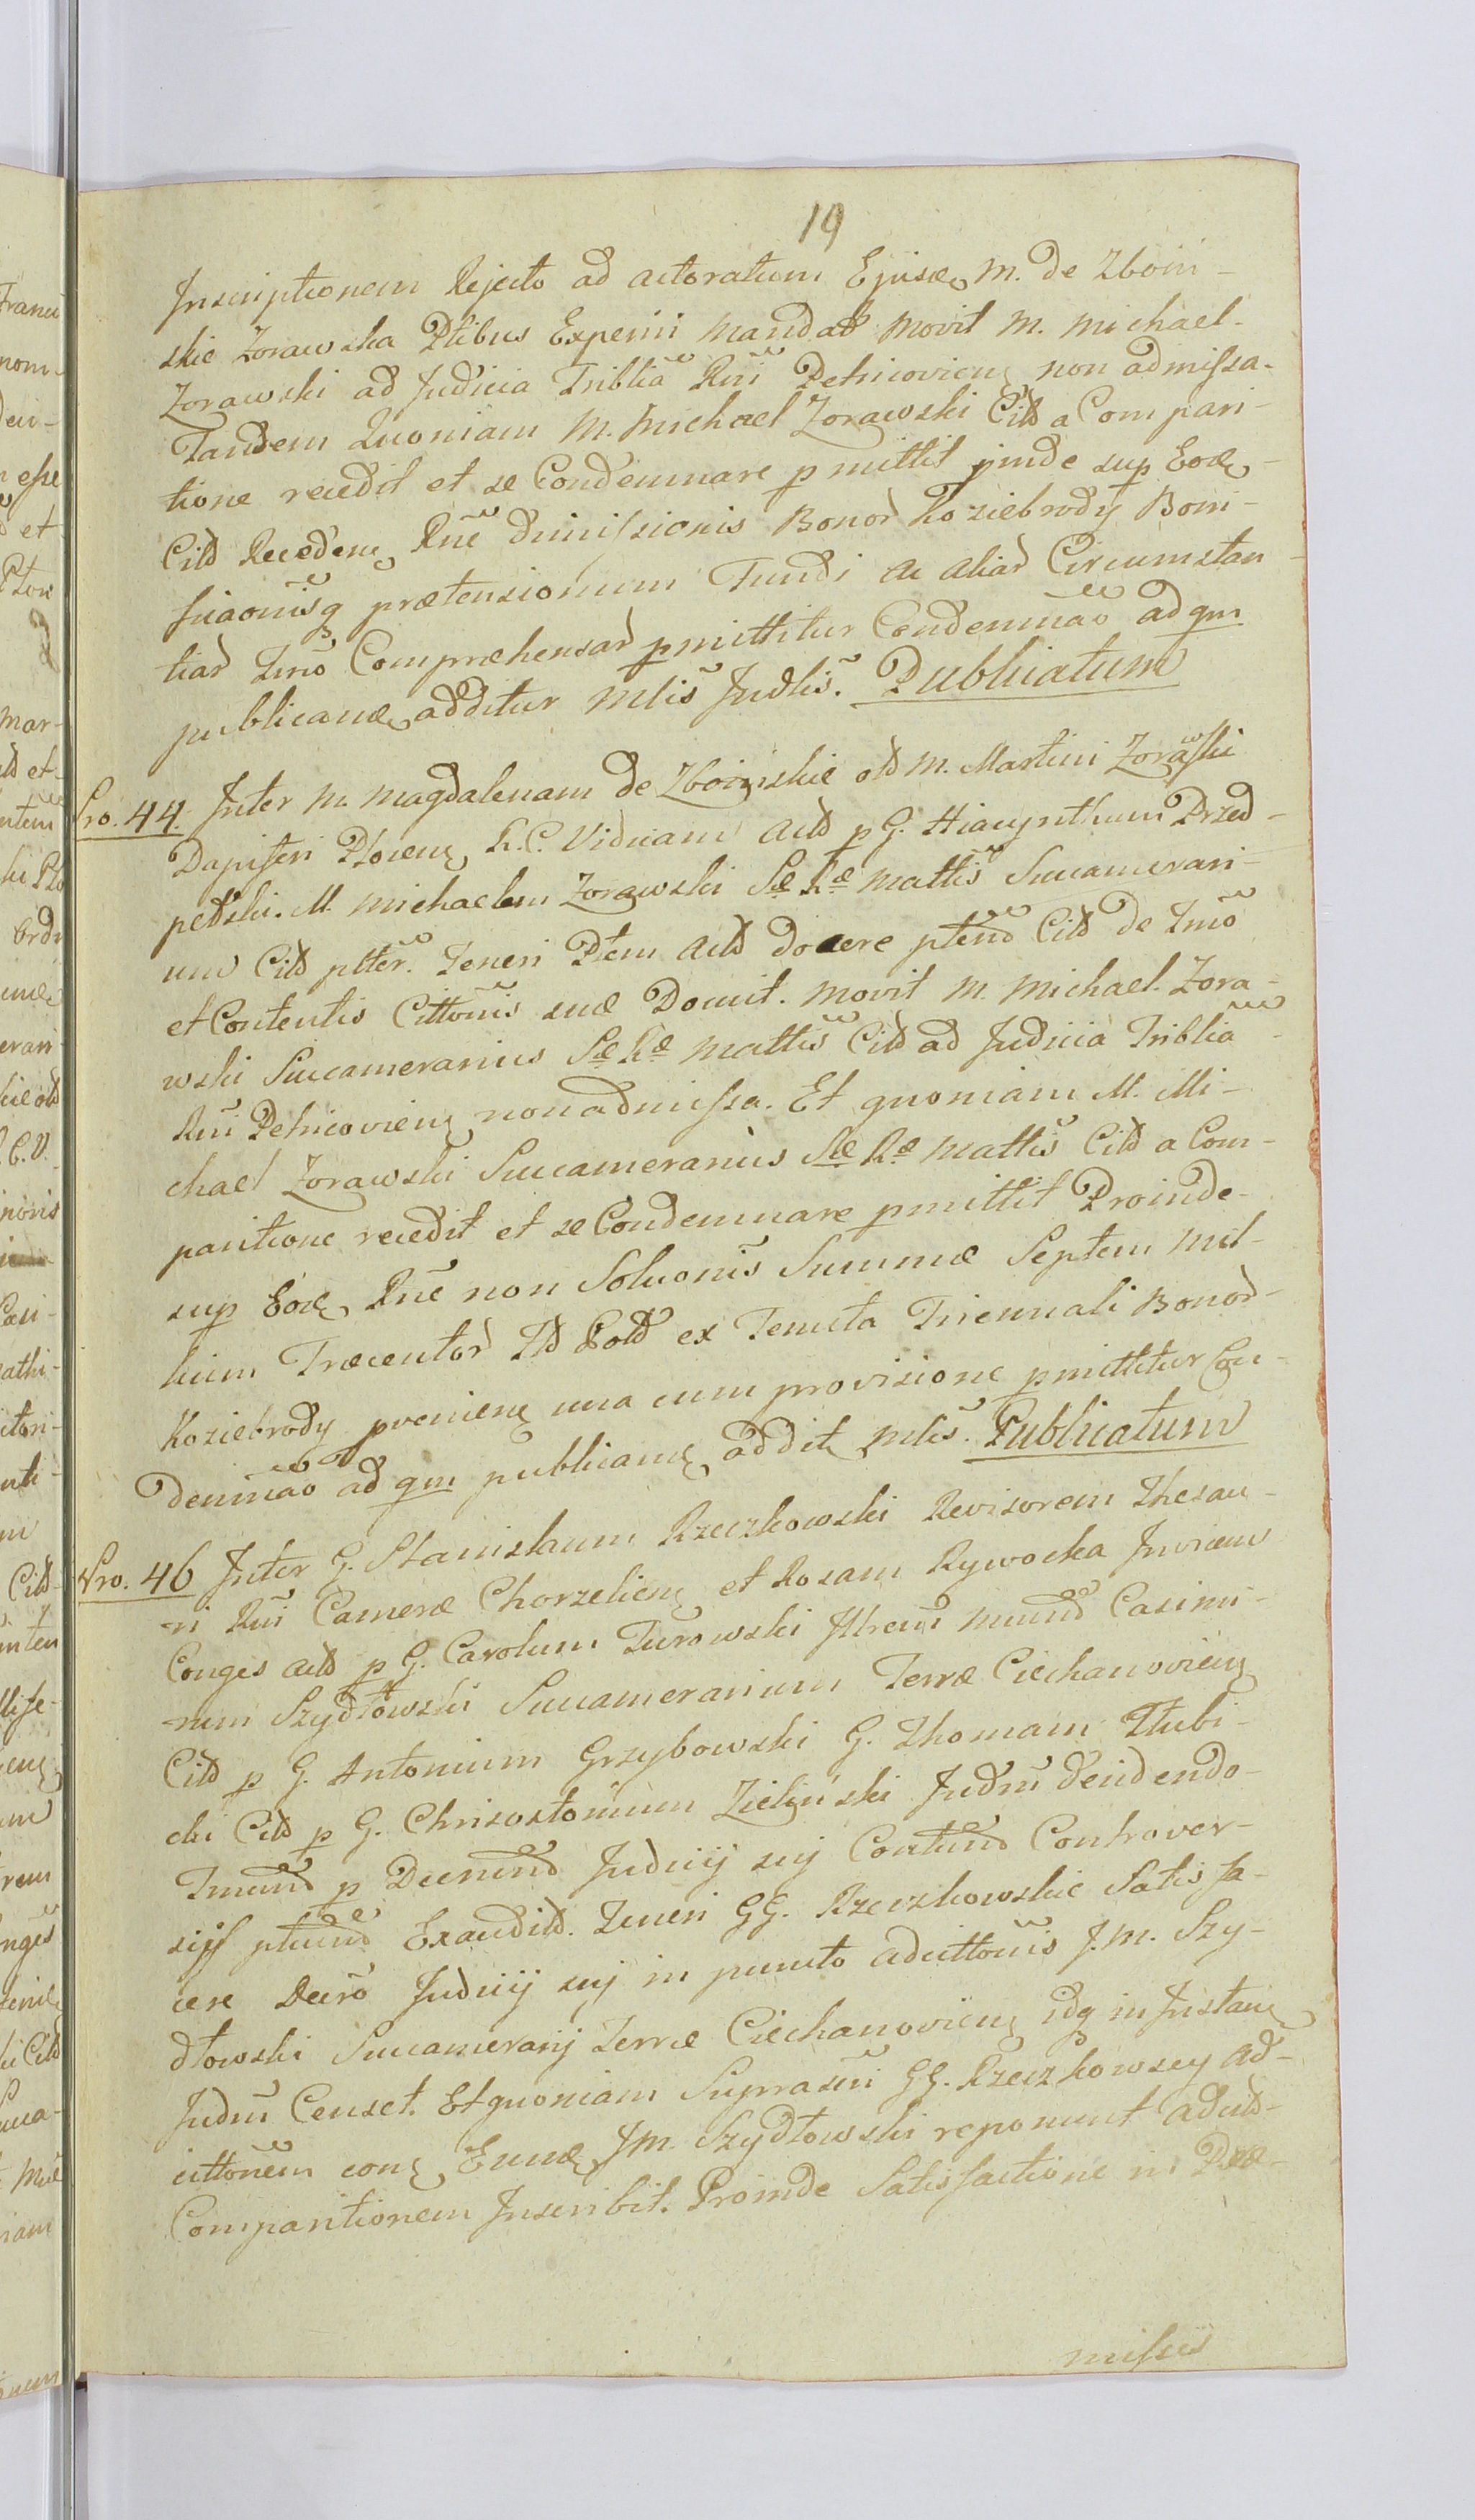 19
Inscriptionem Rejecto ad actoratum Ejusdē M. de Zboin-
skie Zorawska Ptibus Experiri mandad movit M. Michael
Zorawski ad Judicia Triblia Rni Petricovien non admissa.
Tandem Quoniam M. Michael Zorawski Citd a Compari-
tione recedit et se Condemnare pmittit pinde sup Eod
Citd Recedene Rne dimissionis Bonor Koziebrody Boni-
ficaonisq prætensionum Fundi ac aliar Circumstan-
tiar Tmo Compræhensar pmittitur Condemnao ad qm
publicand additur Mlis Judlis. Publicatum
Nro. 44. Inter M. Magdalenam de Zboinskie old M. Martini Zorawski
Dapiferi Plocen R.C. Viduam Actd p G. Hiacynthum Przed-
pedski. M. Michaelem Zorawski Sæ Ræ Mattis Succamerari-
um Citd ptter. Teneri Ptem Actd docere ptend Citd de Tmo
et Contentis Cittonis suæ Docuit. Movit M. Michael Zora-
wski Succamerarius Sæ Ræ Mattis Citd ad Judicia Triblia
Rni Petricovien non admissa. Et quoniam M. Mi-
chael Zorawski Succamerarius Sæ Ræ Mattis Citd a Com-
paritione recedit et se Condemnare pmittit Proinde
sup Eod Rne non Soluonis Summæ Septem Mil-
lium Trecentor Fld Pold ex Tenuta Triennali Bonor
Koziebrody pvenien una cum provisione pmittitur Con-
demnao ad qm publicand addit Mlis. Publicatum
Nro. 46 Inter G. Stanislaum Rzeczkowski Revisorem Thesau-
ri Rni Cameræ Chorzelien et Rosam Rywocka Invicem
Conges Actd p G. Carolum Turowski Illrem Mnnd Casimi-
rum Szydłowski Succamerarium Terræ Ciechanovien
Citd p G. Antonium Grzybowski G. Thomam Tłubi-
cki Citd p G. Chrisostomum Zieliński Judm decidendo
Tmnd p Decrnd Judicij sui Contend Controver-
sijs ptnd Exaudild. Teneri GG. Rzeczkowskie Satisfa-
cere Decro Judicij suj in puncto adcittonis J.M. Szy-
dłowski Succamerarij Terræ Ciechanovien idq in Instan
Judm Censet. Et quoniam Suprascri GG. Rzeczkowscy Ad-
cittonem con Eund JM. Szydłowski reponunt adcitd
Comparitionem Inscribit. Proinde Satisfactione in Præ-
missis